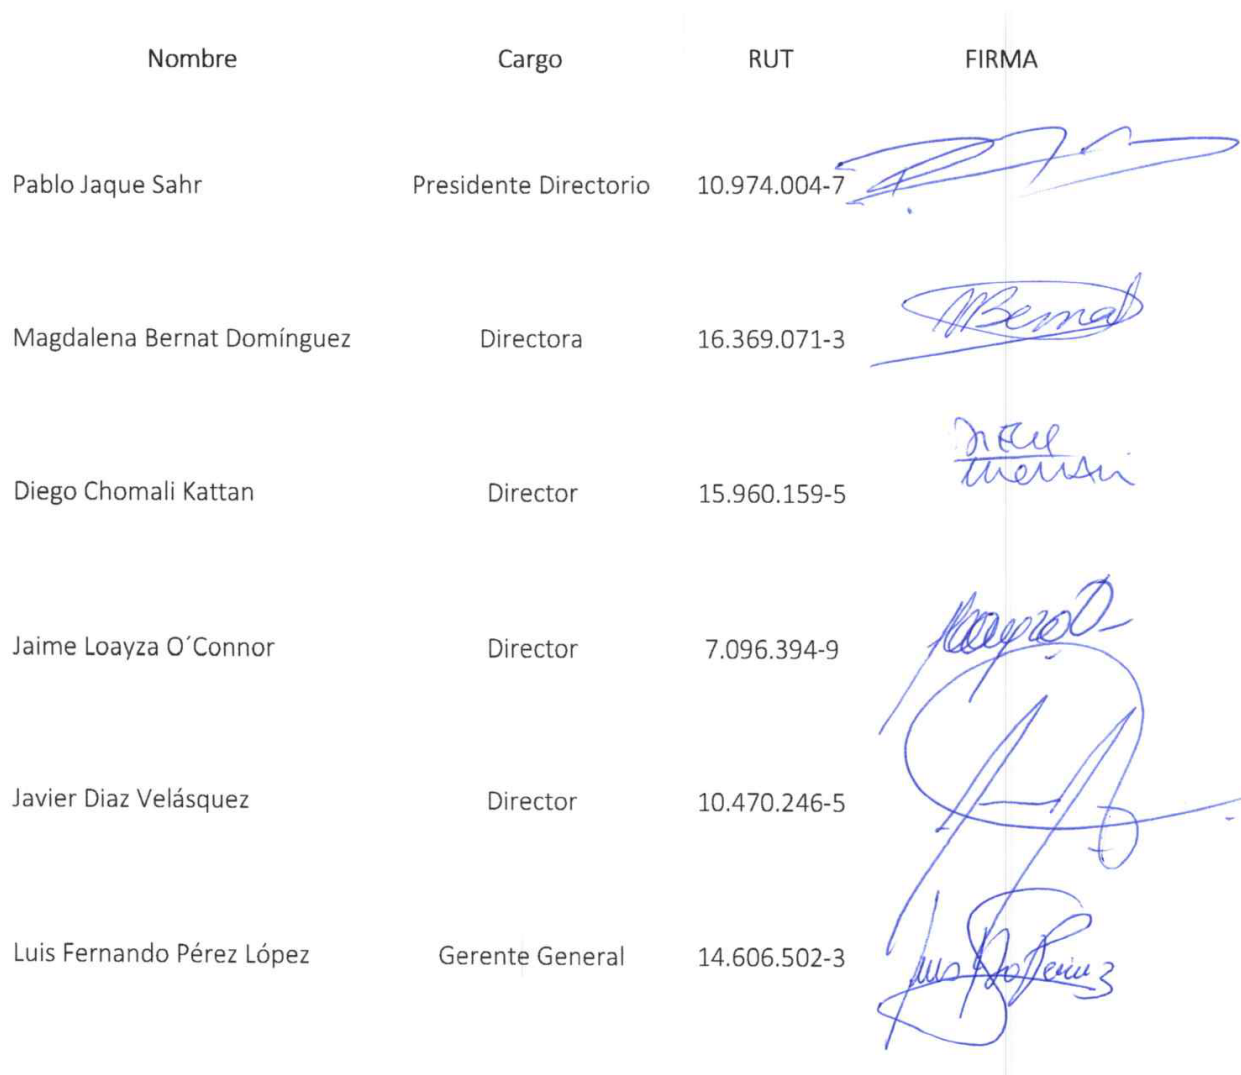 Nombre Cargo RUT FIRMA
Pablo Jaque Sahr Presidente Directorio 10.974.004-7
Magdalena Bernat Domínguez Directora 16.369.071-3 MBernat
Diego Chomali Kattan Director 15.960.159-5
Jaime Loayza O´Connor Director 7.096.394-9
Javier Diaz Velásquez Director 10.470.246-5
Luis Fernando Pérez López Gerente General 14.606.502-3